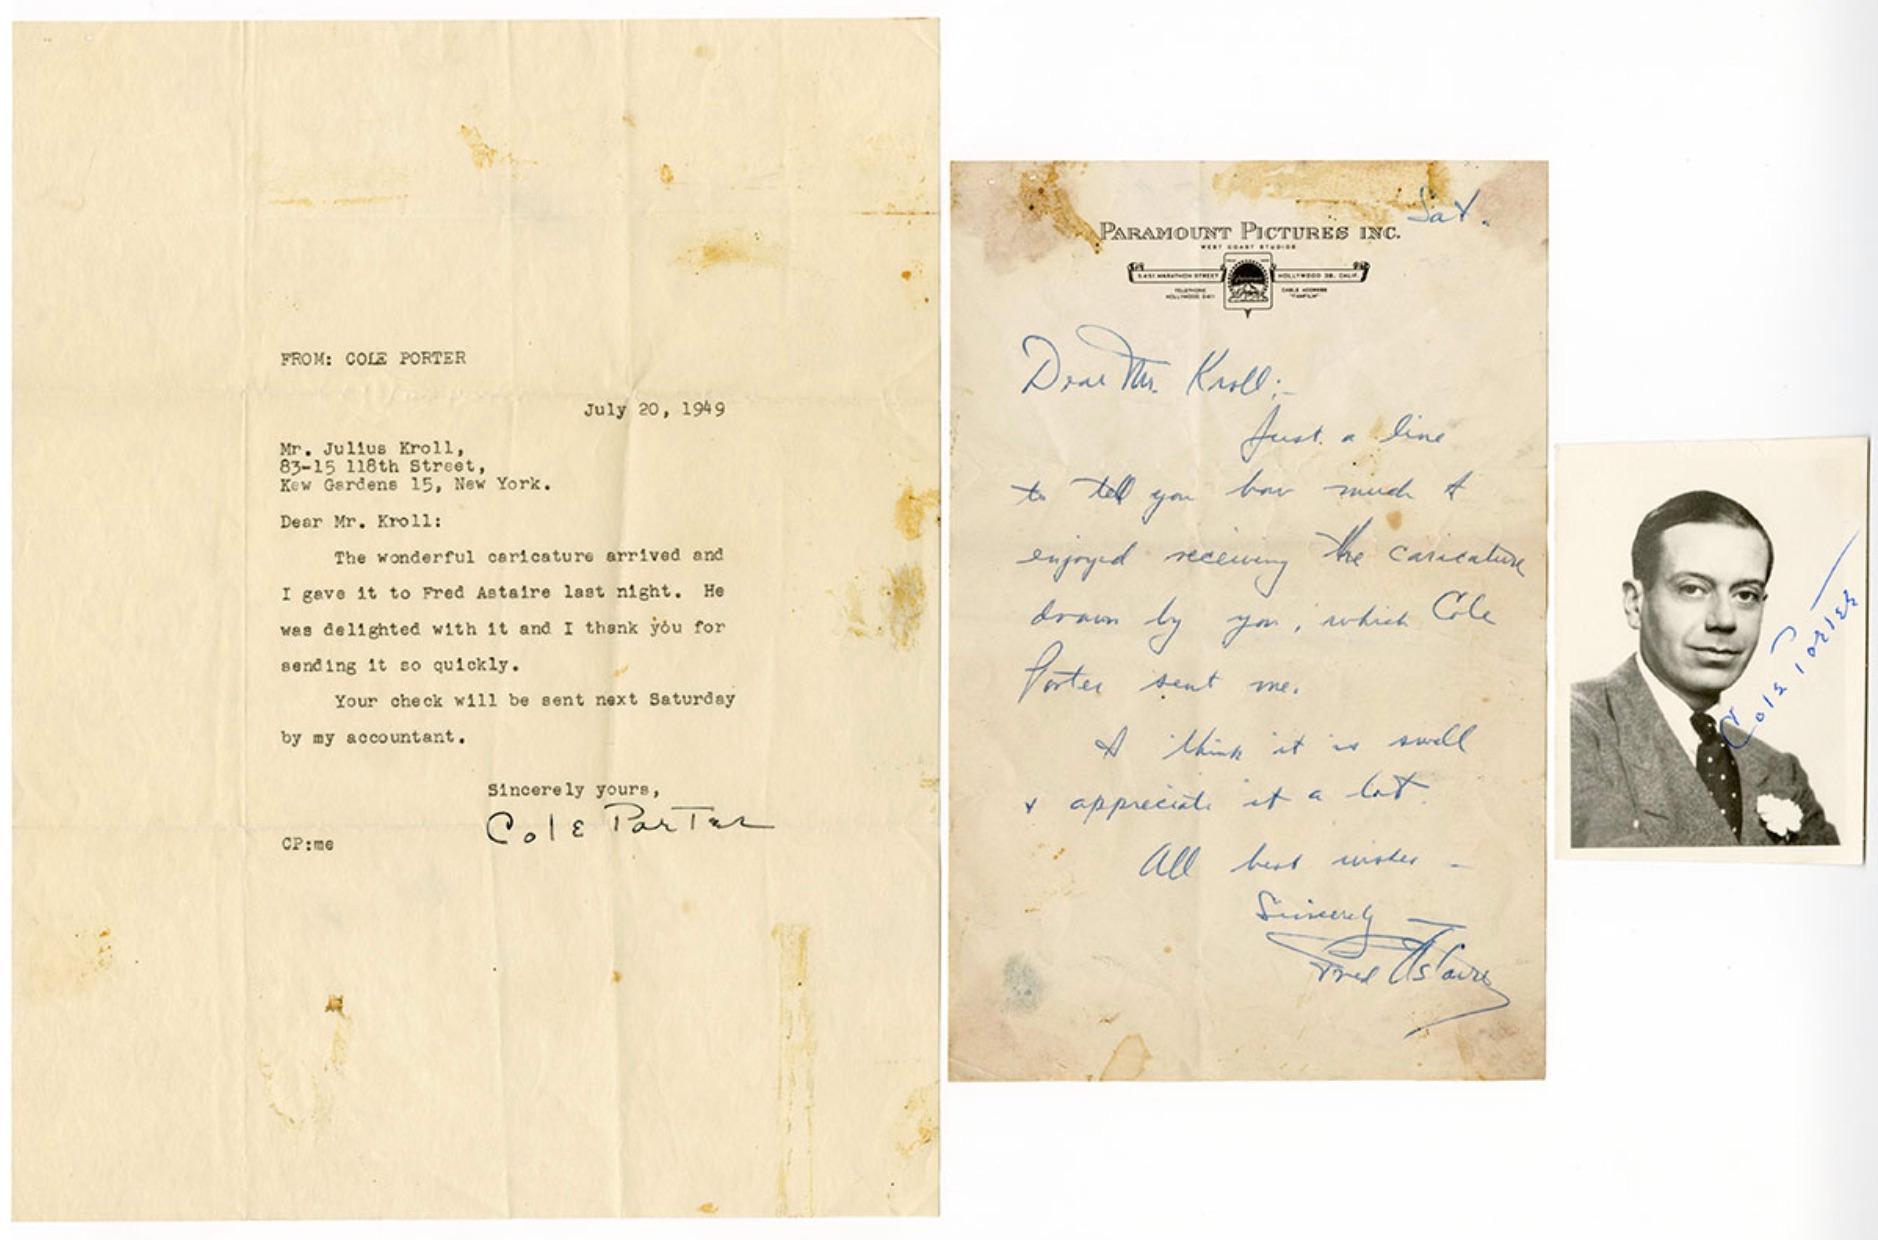 FROM: COLE PORTER
July 20, 1949
Mr. Julius Kroll,
83-15 118th Street,
Kew Gardens 15, New York.
Dear Mr. Kroll:
The wonderful caricature arrived and
I gave it to Fred Astaire last night. He
was delighted with it and I thank you for
sending it so quickly.
Your check will be sent next Saturday
by my accountant.
Sincerely yours,
Cole Porter
CP:me
Sat.
PARAMOUNT PICTURES INC.
WEST COAST STUDIOS
5451 MARATHON STREET
HOLLYWOOD 38, CALIF.
TELEPHONE
HOLLYWOOD 2411
CABLE ADDRESS
"FAMFILM"
Dear Mr. Kroll:-
Just a line
to tell you how much I
enjoyed receiving the caricature
drawn by you, which Cole
Porter sent me.
I think it is swell
& appreciate it a lot.
All best wishes -
Sincerely
Fred Astaire
Cole Porter